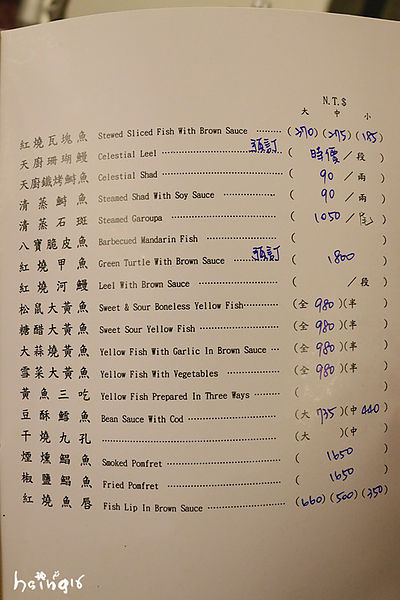 N.T.$
大 中 小
紅燒瓦塊魚 Stewed Sliced Fish With Brown Sauce (370) (275) (185)
天廚珊瑚鰻 Celestial Leel 預訂 ( 時價 / 段 )
天廚鐵烤鰣魚 Celestial Shad ( 90 / 兩 )
清蒸鰣魚 Steamed Shad With Soy Sauce ( 90 / 兩 )
清蒸石斑 Steamed Garoupa ( 1050 / 尾 )
八寶脆皮魚 Barbecued Mandarin Fish ( )
紅燒甲魚 Green Turtle With Brown Sauce 預訂 ( 1800 )
紅燒河鰻 Leel With Brown Sauce ( / 段 )
松鼠大黃魚 Sweet & Sour Boneless Yellow Fish (全 980 )(半 )
糖醋大黃魚 Sweet Sour Yellow Fish (全 980 )(半 )
大蒜燒黃魚 Yellow Fish With Garlic In Brown Sauce (全 980 )(半 )
雪菜大黃魚 Yellow Fish With Vegetables (全 980 )(半 )
黃魚三吃 Yellow Fish Prepared In Three Ways ( )
豆酥鱈魚 Bean Sauce With Cod (大 735 )(中 440 )
干燒九孔 (大 )(中 )
煙燻鯧魚 Smoked Pomfret ( 1650 )
椒鹽鯧魚 Fried Pomfret ( 1650 )
紅燒魚唇 Fish Lip In Brown Sauce (660) (500) (350)
hsing16